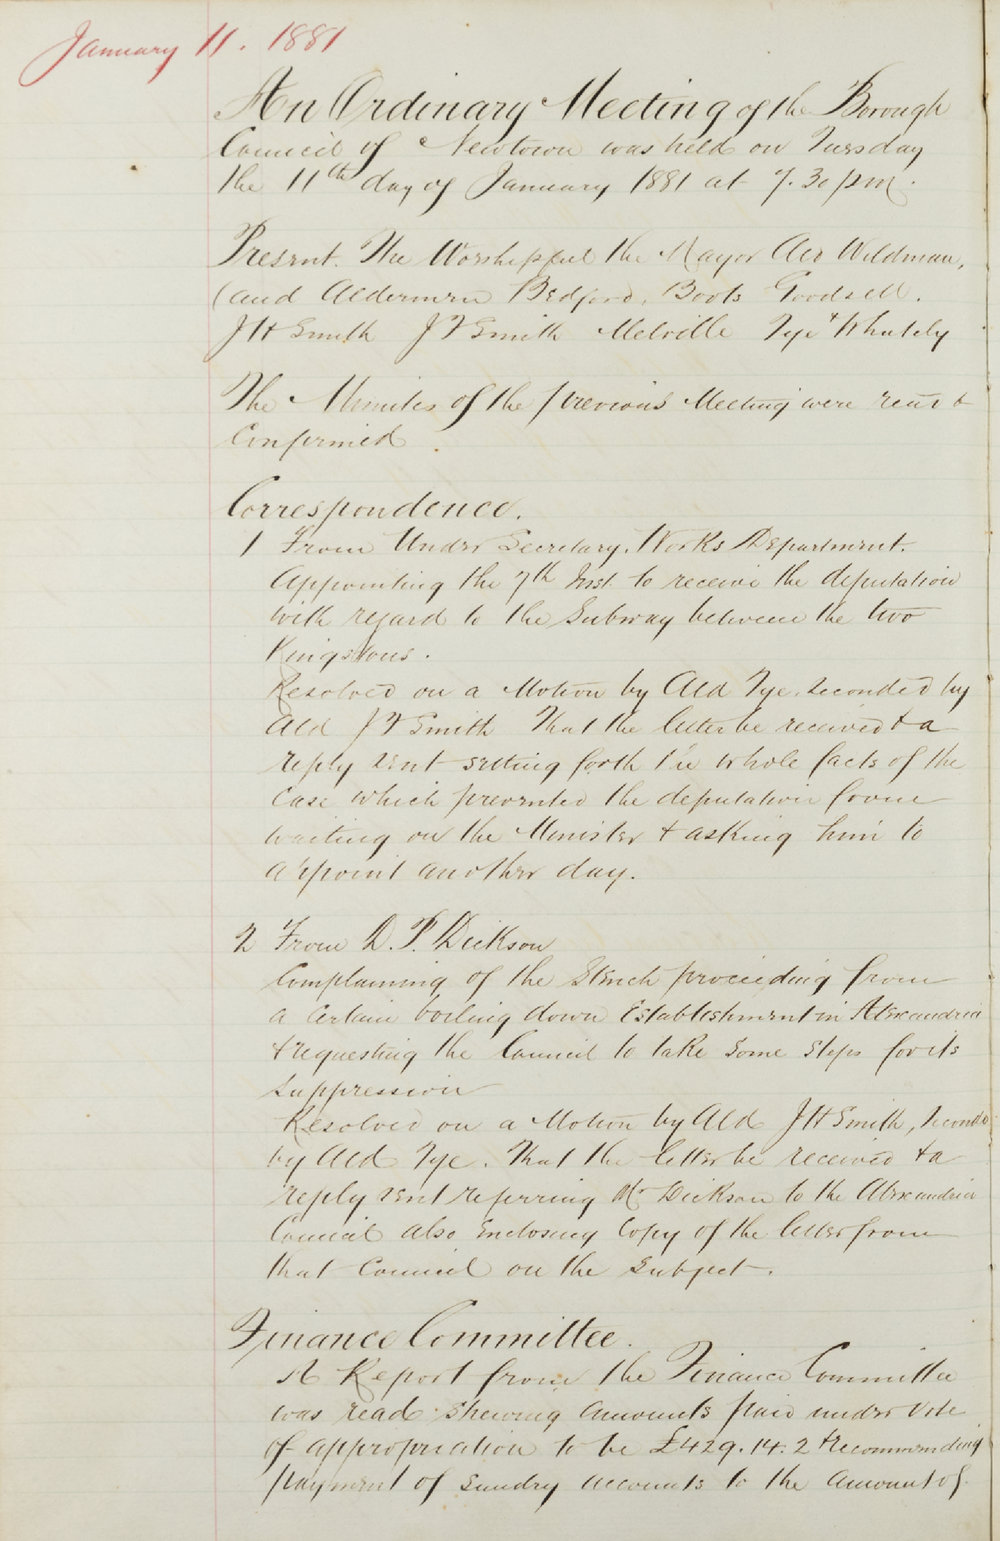 January 11. 1881
An Ordinary Meeting of the Borough
Council of Newtown was held on Tuesday
the 11th day of January 1881 at 7.30 pm.
Present. The Worshipful the Mayor Ald Wildman,
(and Aldermen Bedford, Boots Goodsell.
J H Smith J F Smith Melville Tye & Whately
The Minutes of the previous Meeting were read &
Confirmed
Correspondence.
1 From Under Secretary. Works Department.
Appointing the 7th Inst. to receive the deputation
with regard to the Subway between the two
Kingstons.
Resolved on a Motion by Ald Tye. Seconded by
Ald J F Smith That the letter be received & a
reply sent setting forth the whole facts of the
Case which prevented the deputation from
waiting on the Minister & asking him to
appoint another day.
2 From D. P. Dickson
Complaining of the Stench proceeding from
a Certain boiling down Establishment in Alexandria
& requesting the Council to take some steps for its
suppression
Resolved on a Motion by Ald J H Smith, Seconded
by Ald Tye. That the letter be received & a
reply sent referring Mr Dickson to the Alexandria
Council also Enclosing Copy of the letter from
that Council on the Subject.
Finance Committee.
A Report from the Finance Committee
was read shewing amounts paid under Vote
of appropriation to be £429.14.2 & recommending
payment of Sundry accounts to the amount of